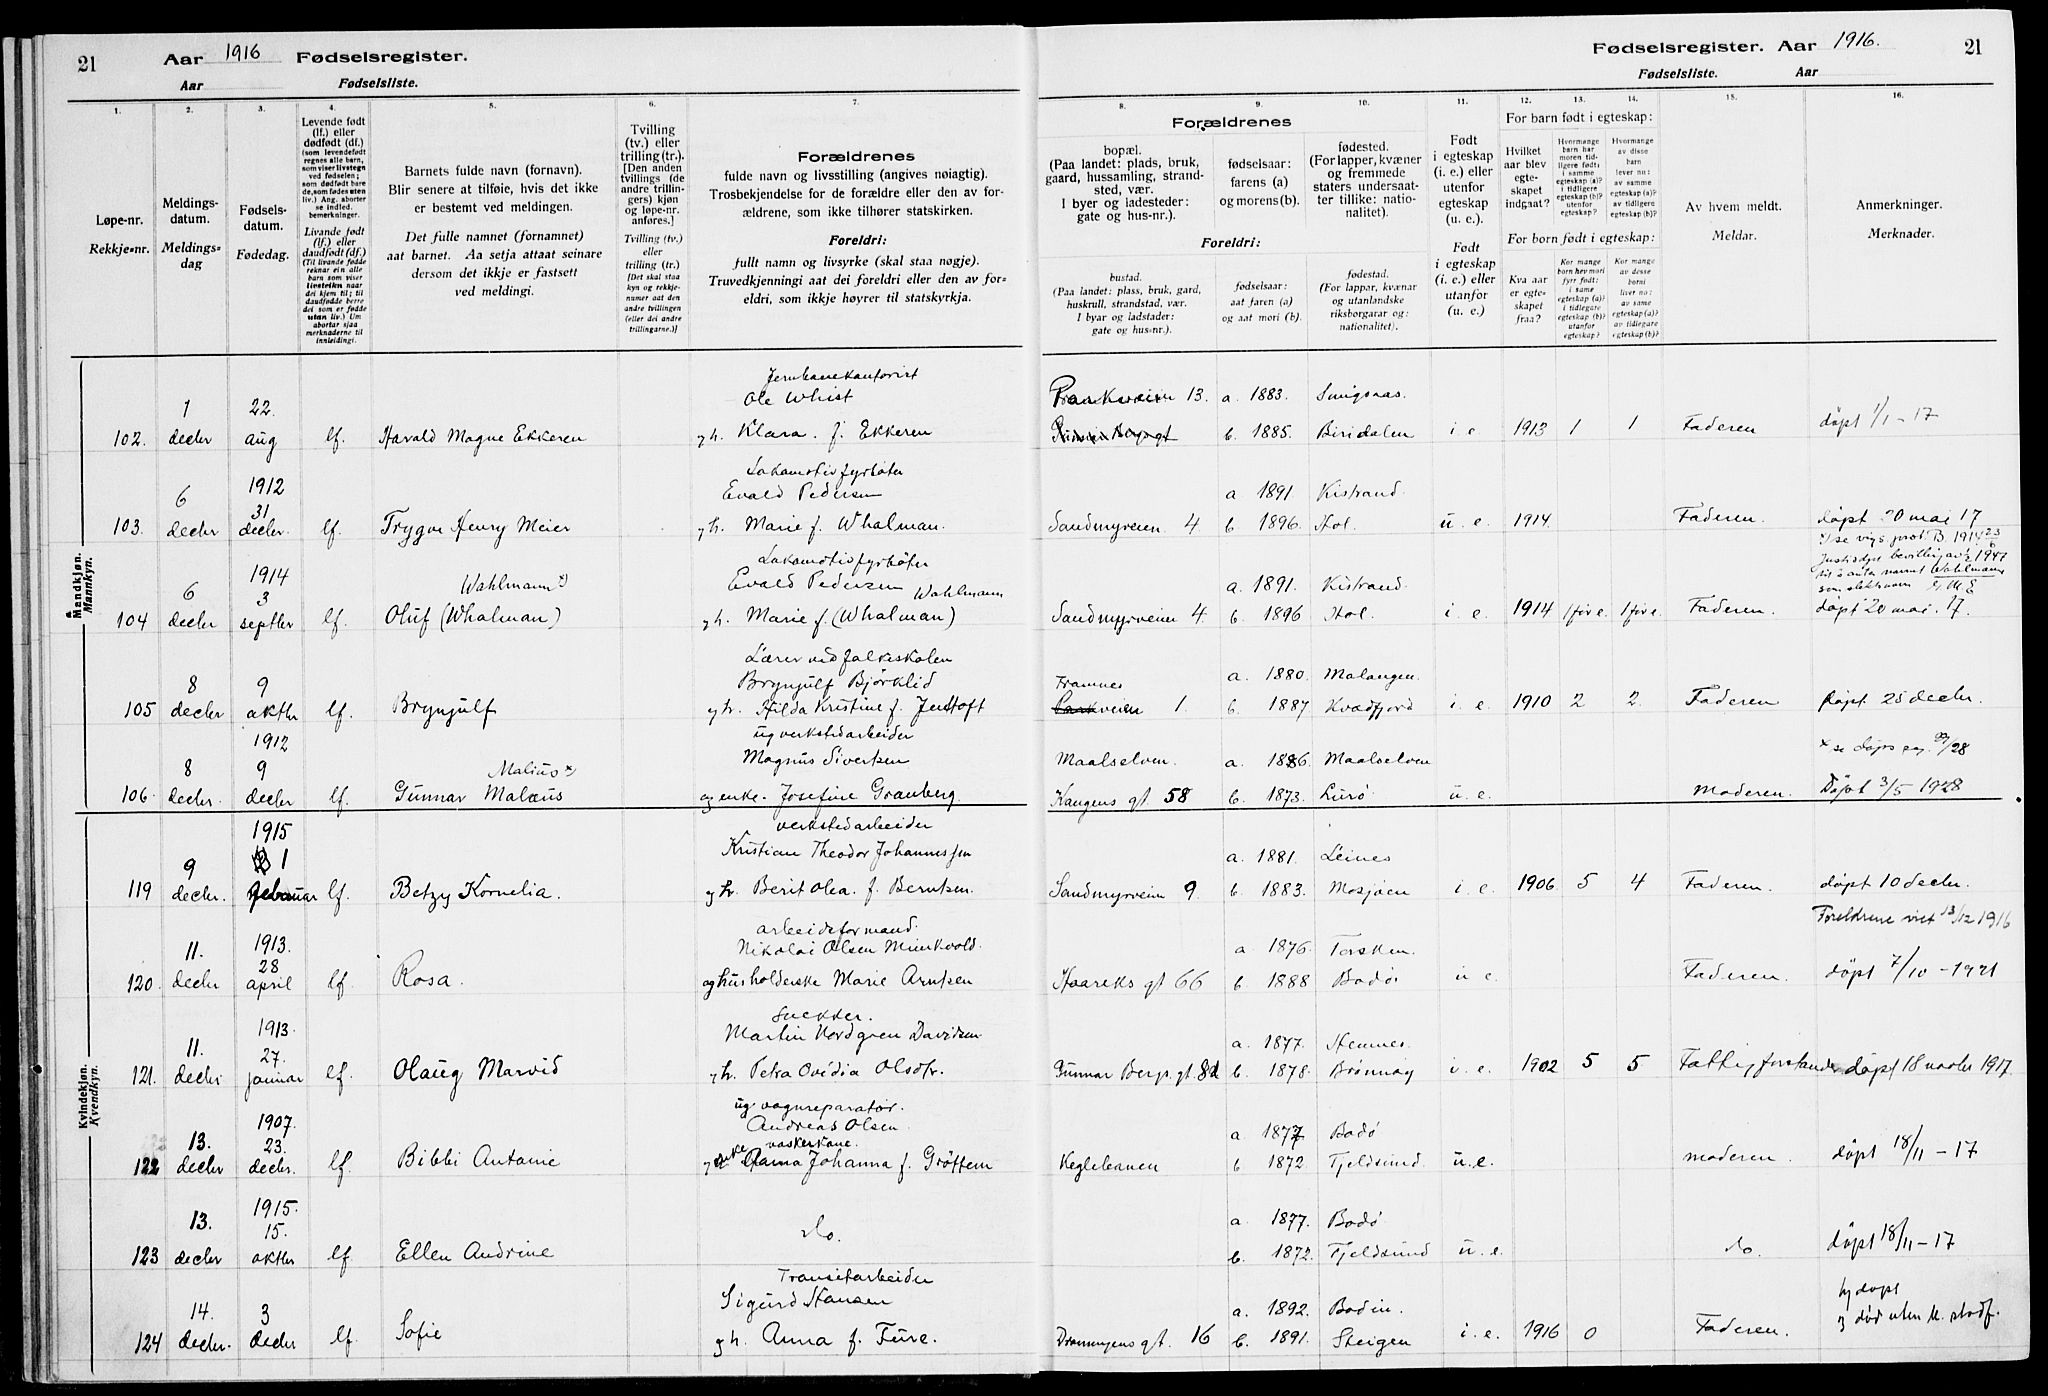 21 Aar 1916 Fødselsregister.
Aar Fødselsliste.
Fødselsregister. Aar 1916. 21
Fødselsliste. Aar
1. 2. 3. 4. 5. 6. 7.
Løpe-nr.
Rekkje-nr.
Meldings-
datum.
Meldings-
dag
Fødsels-
datum.
Fødedag.
Levende født
(lf.) eller
dødfødt (df.)
(som levendefødt
regnes alle barn,
som viser livstegn
ved fødselen;
som dødfødt bare
de, som fødes uten
liv.) Ang. aborter
se indled.
bemerkninger.
Livande født
(lf.) eller
daudfødt (df.)
(Til livande fødde
reknar ein alle
born som viser
livsteikn naar
dei kjem til; til
daudfødde berre
dei som er fødde
utan liv.) Um
abortar sjaa
merknaderne til
innleidingi.
Barnets fulde navn (fornavn).
Blir senere at tilføie, hvis det ikke
er bestemt ved meldingen.
Det fulle namnet (fornamnet)
aat barnet. Aa setja attaat seinare
dersom det ikkje er fastsett
ved meldingi.
Tvilling
(tv.) eller
trilling (tr.).
[Den anden
tvillings (de
andre trillin-
gers) kjøn
og løpe-nr.
anføres.]
Tvilling (tv.)
eller
trilling (tr.)
[Det skal staa
kyn og rekkje-
numer aat den
andre tvillingen
(eller dei andre
trillingarne.)]
Forældrenes
fulde navn og livsstilling (angives nøiagtig).
Trosbekjendelse for de forældre eller den av for-
ældrene, som ikke tilhører statskirken.
Foreldri:
fullt namn og livsyrke (skal staa nøgje).
Truvedkjenningi aat dei foreldri eller den av for-
eldri, som ikkje høyrer til statskyrkja.
8. 9. 10. 11. 12. 13. 14. 15. 16.
Forældrenes
bopæl.
(Paa landet: plads, bruk,
gaard, hussamling, strand-
sted, vær.
I byer og ladesteder:
gate og hus-nr.).
fødselsaar:
farens (a)
og morens (b).
fødested.
(For lapper, kvæner
og fremmede
staters undersaat-
ter tillike: natio-
nalitet).
Foreldri:
bustad.
(Paa landet: plass, bruk, gard,
huskrull, strandstad, vær.
I byar og ladstader:
gate og hus-nr.).
fødselsaar:
aat faren (a)
og aat mori (b).
fødestad.
(For lappar, kvænar
og utanlandske
riksborgarar og:
nationalitet).
Født
i egteskap
(i. e.) eller
utenfor
egteskap
(u. e.).
Født
i egteskap
(i. e.) eller
utanfor
(u. e.)
For barn født i egteskap:
Hvilket
aar blev
egte-
skapet
indgaat?
Hvormange
barn har
moren tid-
ligere født:
i samme
egteskap (a)?
i tidligere
egteskap (b)?
utenfor
egteskap?
Hvormange
av disse
barn
lever nu:
av samme
egteskap (a)?
av tidligere
egteskap (b)?
For born født i egteskap:
Kva aar
er egte-
skapet
fraa?
Kor mange
born hev mori
fyrr født:
i same
egteskap (a)?
i tidlegare
egteskap (b)?
utanfor
egteskap?
Kor mange
av desse
borni
liver no:
av same
egteskap (a)?
av tidlegare
egteskap (b)?
Av hvem meldt.
Meldar.
Anmerkninger.
Merknader.
Mandkjøn.
Mannkyn.
Jernbanekontorist
1 22. Ole Whist 13. a. 1883.
102. decbr aug lf. Harald Magne Ekkeren Klara f. Ekkeren b. 1885. Biridalen i. e. 1913 1 1 Faderen døpt 1/1 - 17
Lokomotivfyrbøter
6 1912 31 Evald Pedersen a 1891. Kistrand.
103. decbr decbr. lf. Trygve Henry Meier Marie f. Whalman. Sandmyrveien 4 b. 1896. Hol. u. e. 1914. Faderen. døpt 20 mai 17
Lokomotivfyrbøter
6 1914 3 Wahlmann x) Evald Pedersen Wahlmann a. 1891. Kistrand.
104 decbr septbr lf. Oluf (Whalman) Marie f. (Whalman) Sandmyrveien 4. b. 1896 Hol. i. e. 1914 1 før e. 1 før e. Faderen. døpt 20 mai. 17.
Lærer ved folkeskolen
8 9 Brynjulf Bjørklid Framnes a. 1880. Malangen.
105 decbr oktbr lf. Brynjulf Hilda Kristine f. Jentoft veien 1. b. 1887 Kvædfjord i. e. 1910 2 2. Faderen døpt 25 decbr.
ug verkstedarbeider
8 1912 9 Malius x) Magnus Sivertsen Maalselven. a. 1886. Maalselven
106. decbr. decbr lf. Gunnar Malæus og enke Josefine Granberg. Kongens gt 58 b. 1873. Lurø u. e. Moderen. Døpt 3/5 1928
Kvindekjøn.
Kvendkyn.
verkstedarbeider
9 1915 1 Kristian Theodor Johannessen a. 1881. Leines
119 decbr. februar lf. Betzy Kornelia. Berit Olea f. Berntsen. Sandmyrveien 9. b. 1883. Mosjøen i. e. 1906 5 4 Faderen. døpt 10 decbr.
Foreldrene viet 13/12 1916
arbeidsformand.
11. 1913. 28 Nikolai Olsen a. 1876. Torsken.
120. decbr april lf. Rosa. og husholderske Marie Arntsen Haareks gt 66 b. 1888 Bodø u. e. Faderen. døpt 7/10 - 1921
Snekker.
11. 1913. 27. Martin Nordgren Davidsen a. 1877. Hemnes
121. decbr januar lf. Olaug Marvid Petra Ovidia Olsdtr. Gunnar Bergs gt 8d b. 1878. Brønnøy i. e. 1902 5 5 Fattigforstander døpt 18 novbr 1917.
ug vognreparatør.
13. 1907. 23. Andreas Olsen. a. 1877 Bodø
vaskerkone.
122 decbr decbr. lf. Bibbi Antonie enke Anna Johanna f. Grøttem Keglebanen b 1872. Fjeldsund. u. e. moderen. døpt 18/11 - 17
13. 1915. 15. do. a. 1877. Bodø
123 decbr oktbr lf. Ellen Andrine b. 1872. Fjeldsund u. e. do. døpt 18/11 - 17
Transitarbeider
14. 3 Sigurd Hansen a. 1892. Bodin. hj døpt
124 decbr. decbr lf. Sofie Anna f. Fure. Dronningens gt. 16 b. 1891. Steigen i. e. 1916 0 Faderen.